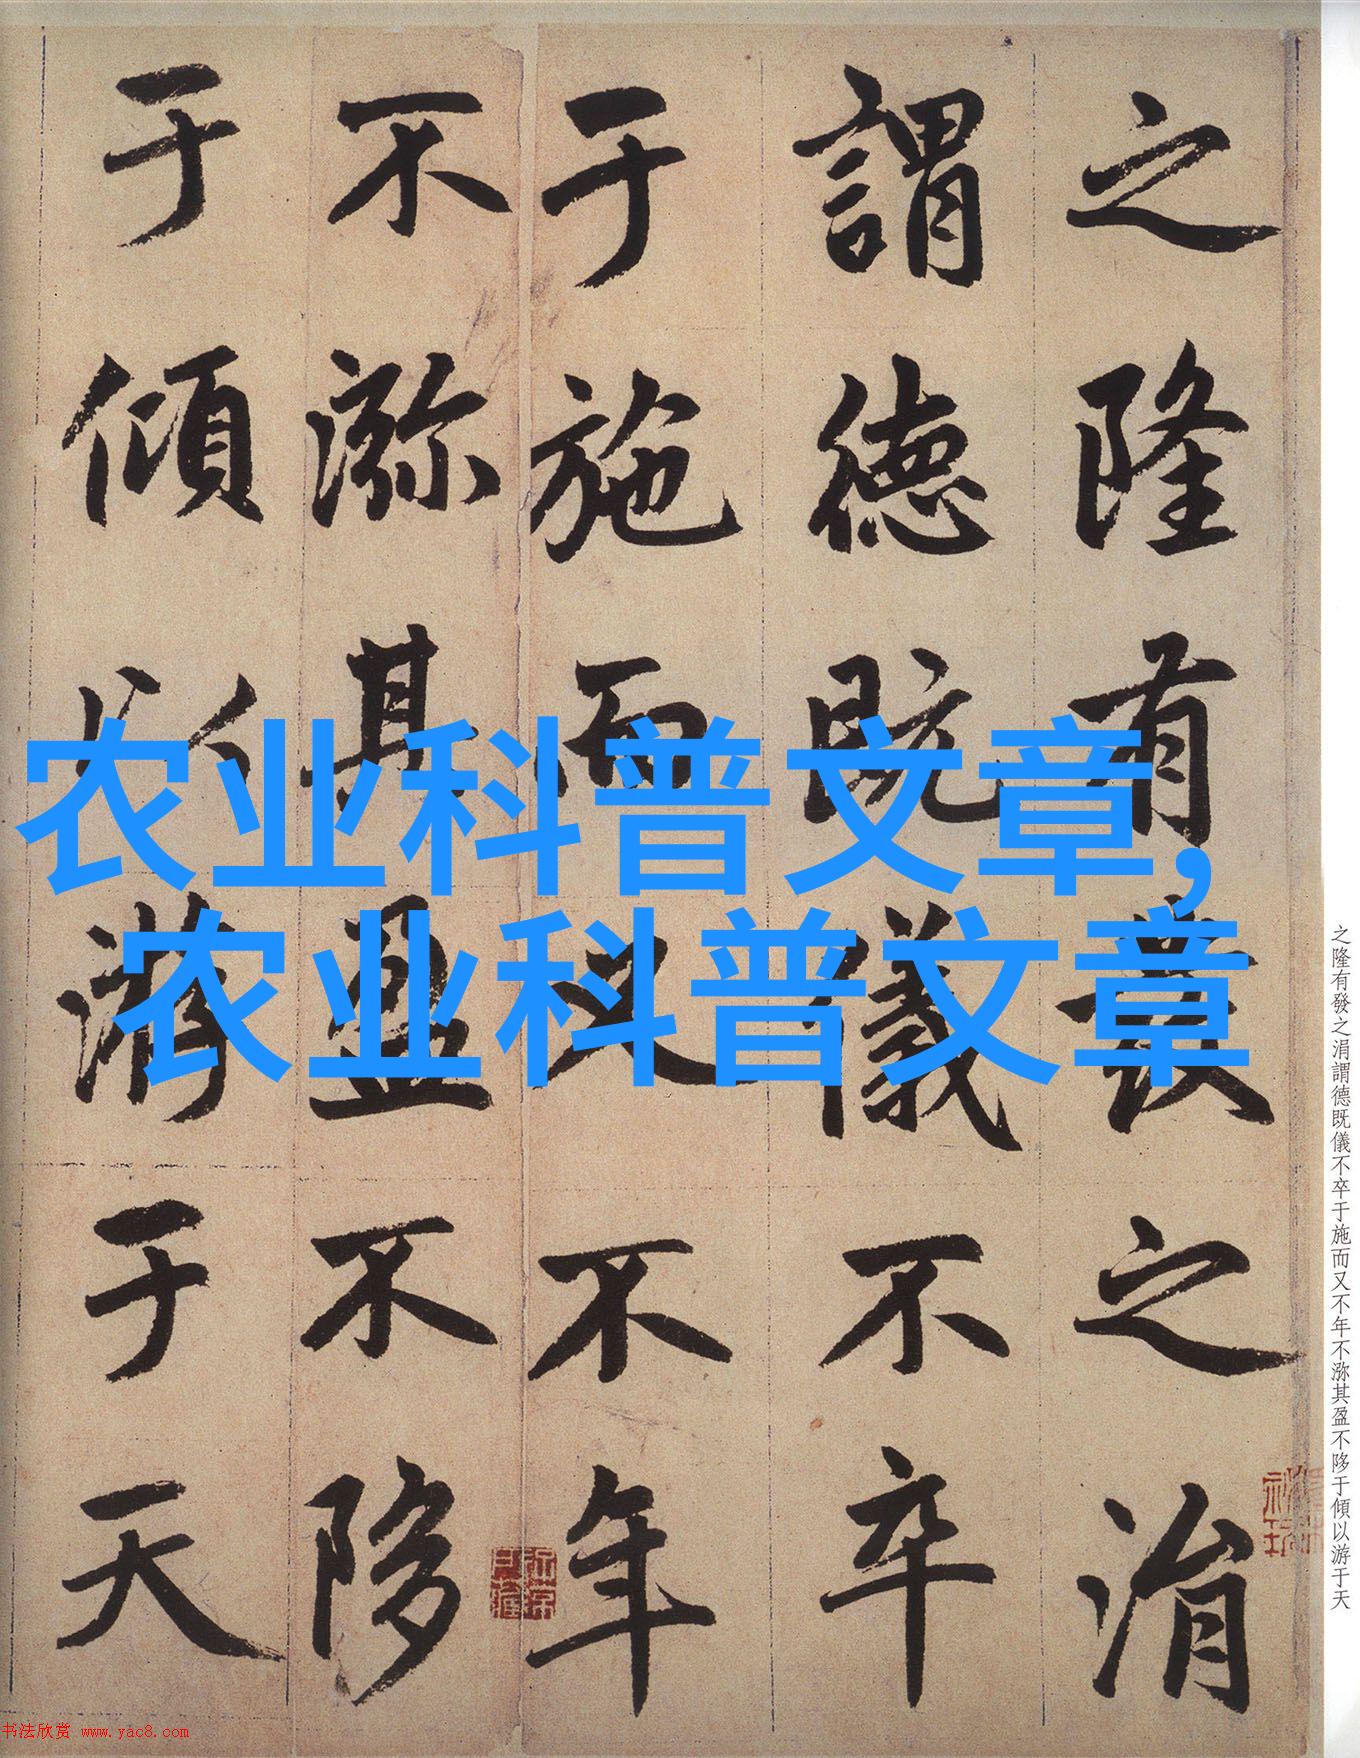 之隆有發之涓
謂德既儀不卒
于施而又不年
不游其盈不陊
于傾以游于天
农业科普文章,
农业科普文章
之隆有發之涓謂德既儀不卒于施而又不年不游其盈不陊于傾以游于天
书法欣赏 www.yac8.com